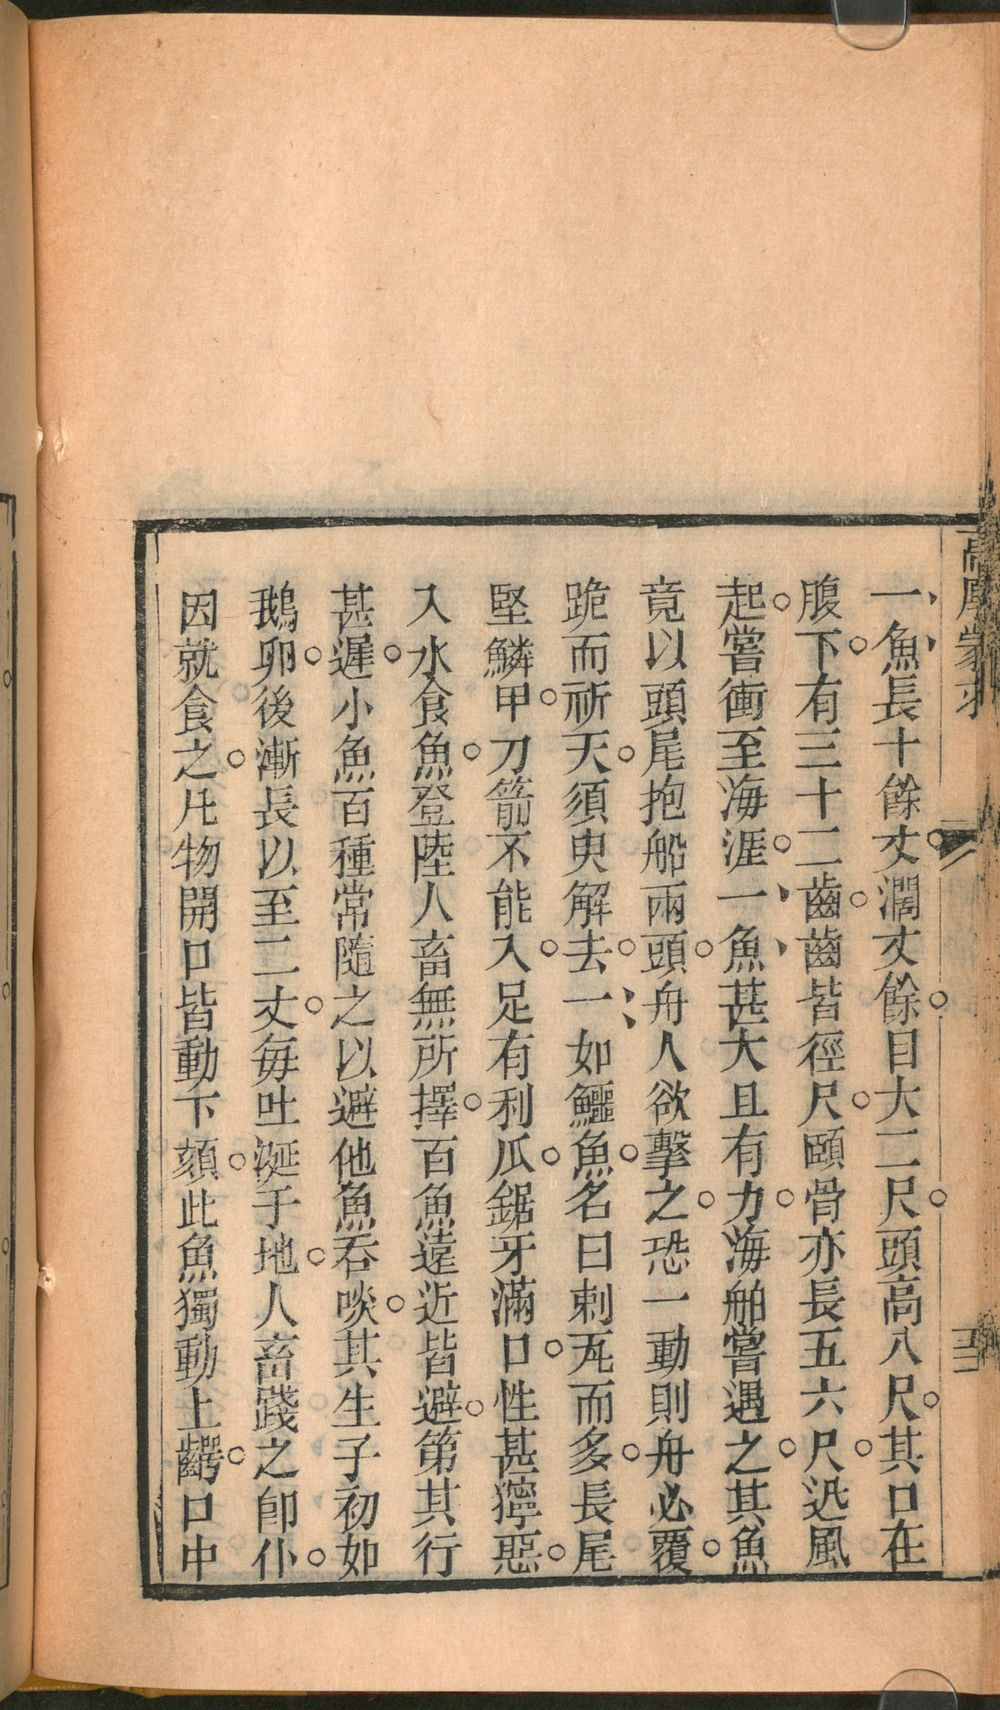 一魚長十餘丈濶丈餘目大二尺頭高八尺其口在
腹下有三十二齒齒皆徑尺頤骨亦長五六尺迅風
起嘗衝至海涯一魚甚大且有力海舶嘗遇之其魚
竟以頭尾抱船兩頭舟人欲擊之恐一動則舟必覆
跪而祈天須臾解去一如鱷魚名曰剌瓦而多長尾
堅鱗甲刀箭不能入足有利瓜鋸牙滿口性甚獰惡
入水食魚登陸人畜無所擇百魚遠近皆避第其行
甚遲小魚百種常隨之以避他魚吞啖其生子初如
鵝卵後漸長以至二丈每吐涎于地人畜踐之卽仆
因就食之凡物開口皆動下頦此魚獨動上齶口中